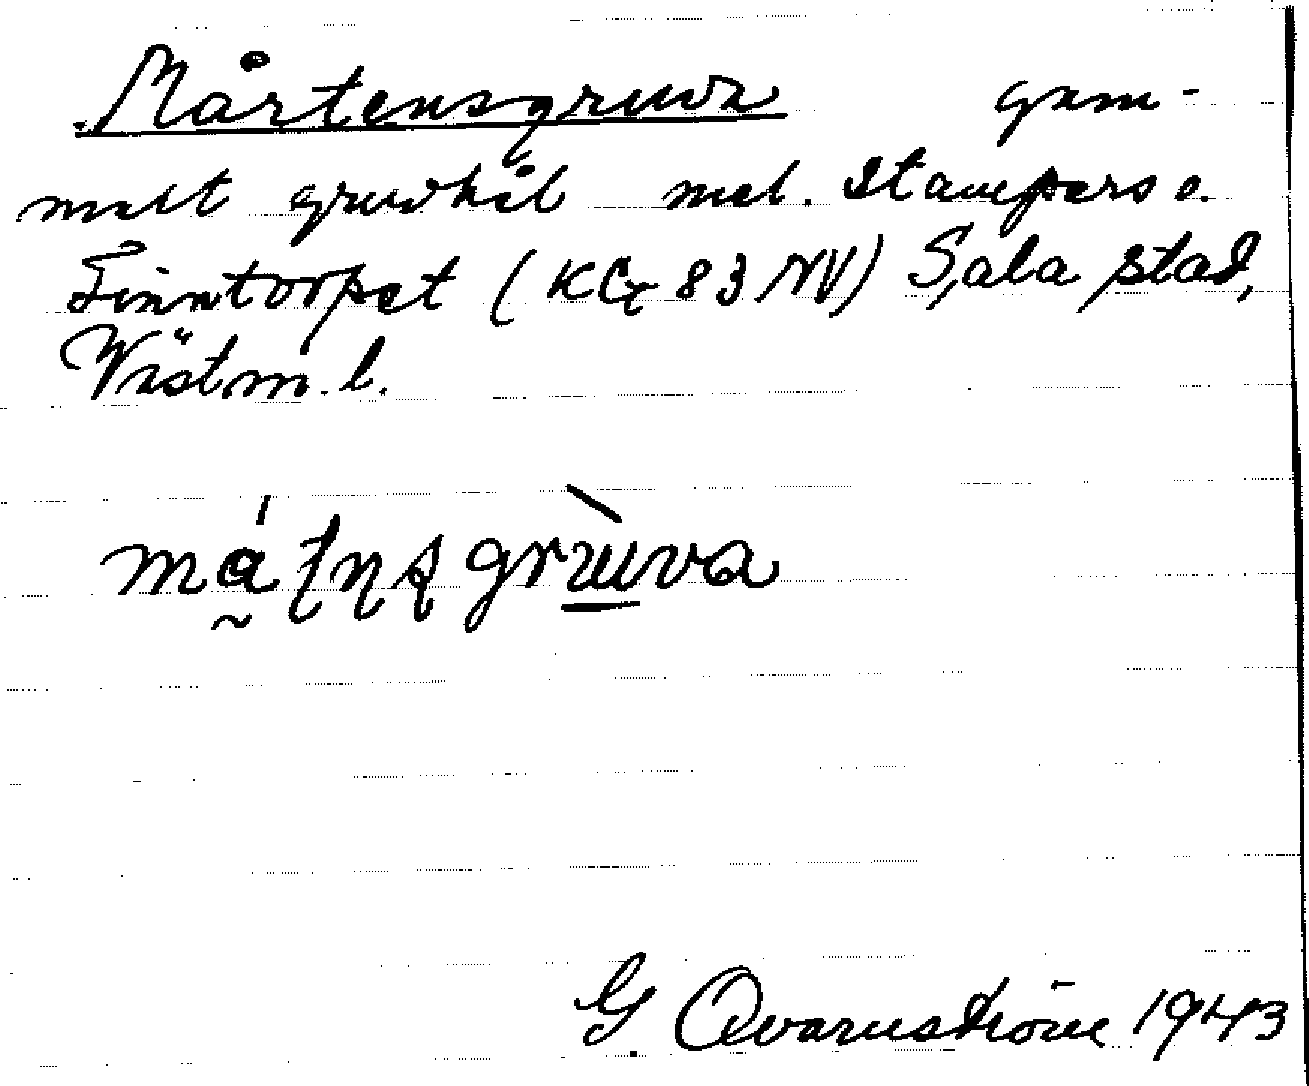 Mårtensgruva gam-
malt gruvhål mel. Stampers o.
Finntorpet (KCg 83 NV) Sala stad,
Västm. l.
mátnsgrùva
G Qvarnström 1943